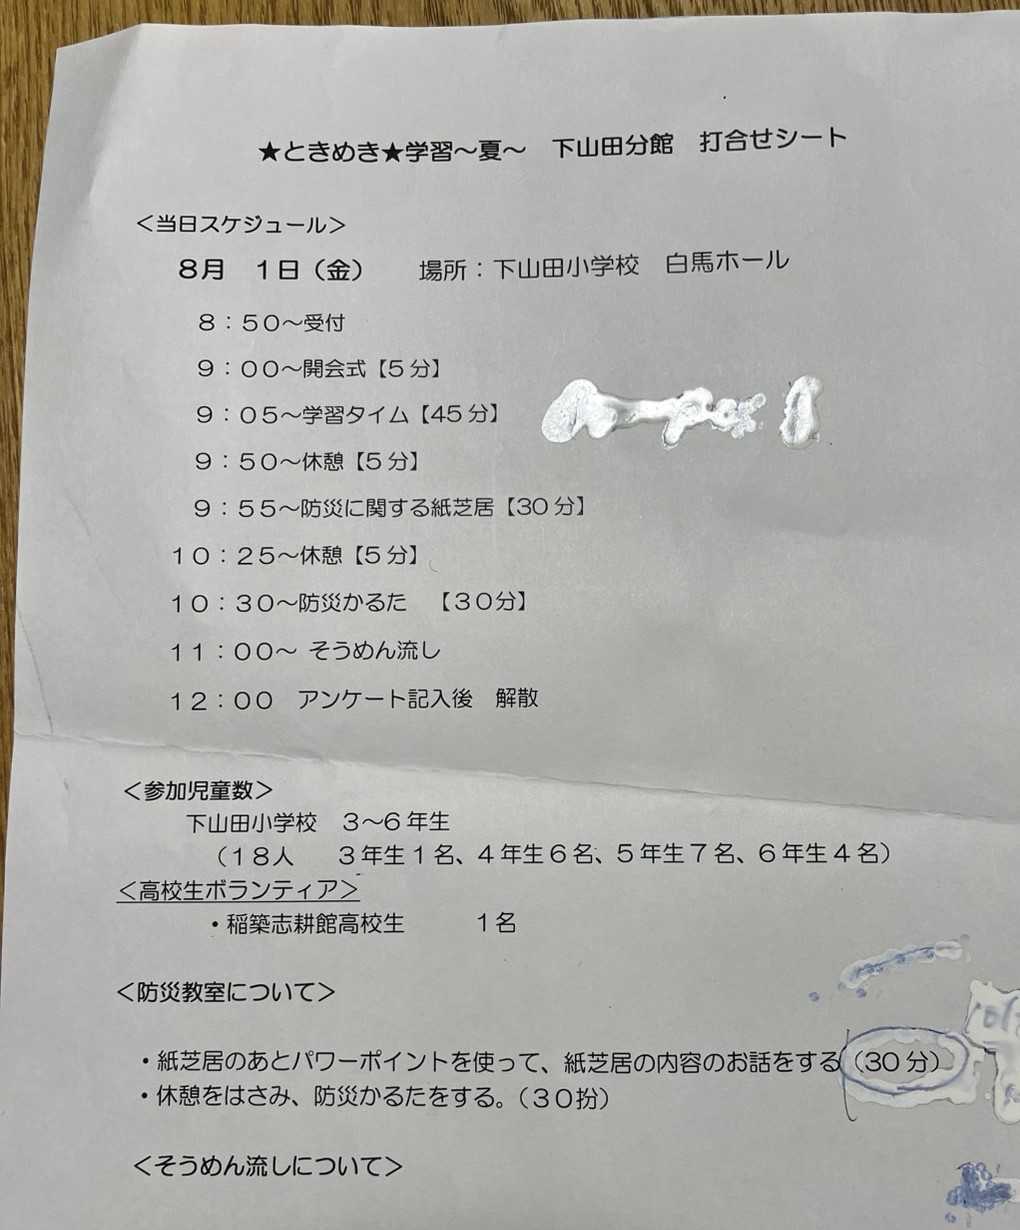 ★ときめき★学習～夏～　下山田分館　打合せシート
＜当日スケジュール＞
８月　１日（金）　　場所：下山田小学校　白馬ホール
８：５０～受付
９：００～開会式【５分】
９：０５～学習タイム【45分】
９：５０～休憩【５分】
９：５５～防災に関する紙芝居【30分】
１０：２５～休憩【５分】
１０：３０～防災かるた　【３０分】
１１：００～ そうめん流し
１２：００　アンケート記入後　解散
＜参加児童数＞
下山田小学校　３～６年生
（１８人　　３年生１名、４年生６名、５年生７名、６年生４名）
＜高校生ボランティア＞
・稲築志耕館高校生　　　１名
＜防災教室について＞
・紙芝居のあとパワーポイントを使って、紙芝居の内容のお話をする（30分）
・休憩をはさみ、防災かるたをする。（３０扮）
＜そうめん流しについて＞